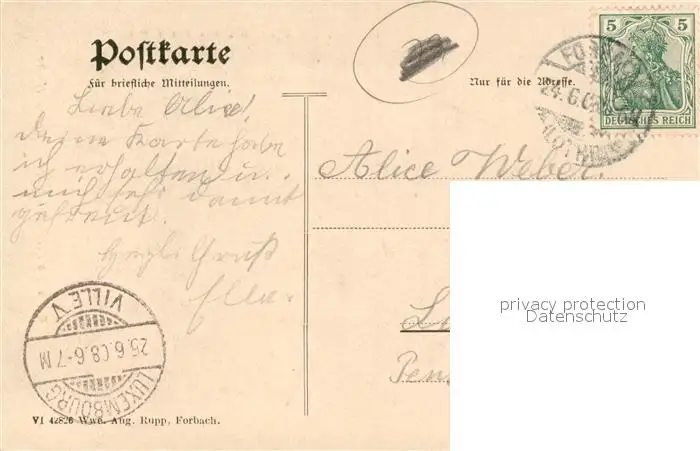 Postkarte
Für briefliche Mitteilungen.
Nur für die Adresse.
5 5
DEUTSCHES REICH
24.6.08
(LOTHR)
Liebe Alice!
Deine Karte habe
ich erhalten u.
mich sehr damit
gefreut.
Herzl. Gruß
Ella.
Alice Weber.
LUXEMBOURG
VILLE.V
25.6.08.6-7 M
privacy protection
Datenschutz
VI 42826 Wwe. Aug. Rupp, Forbach.